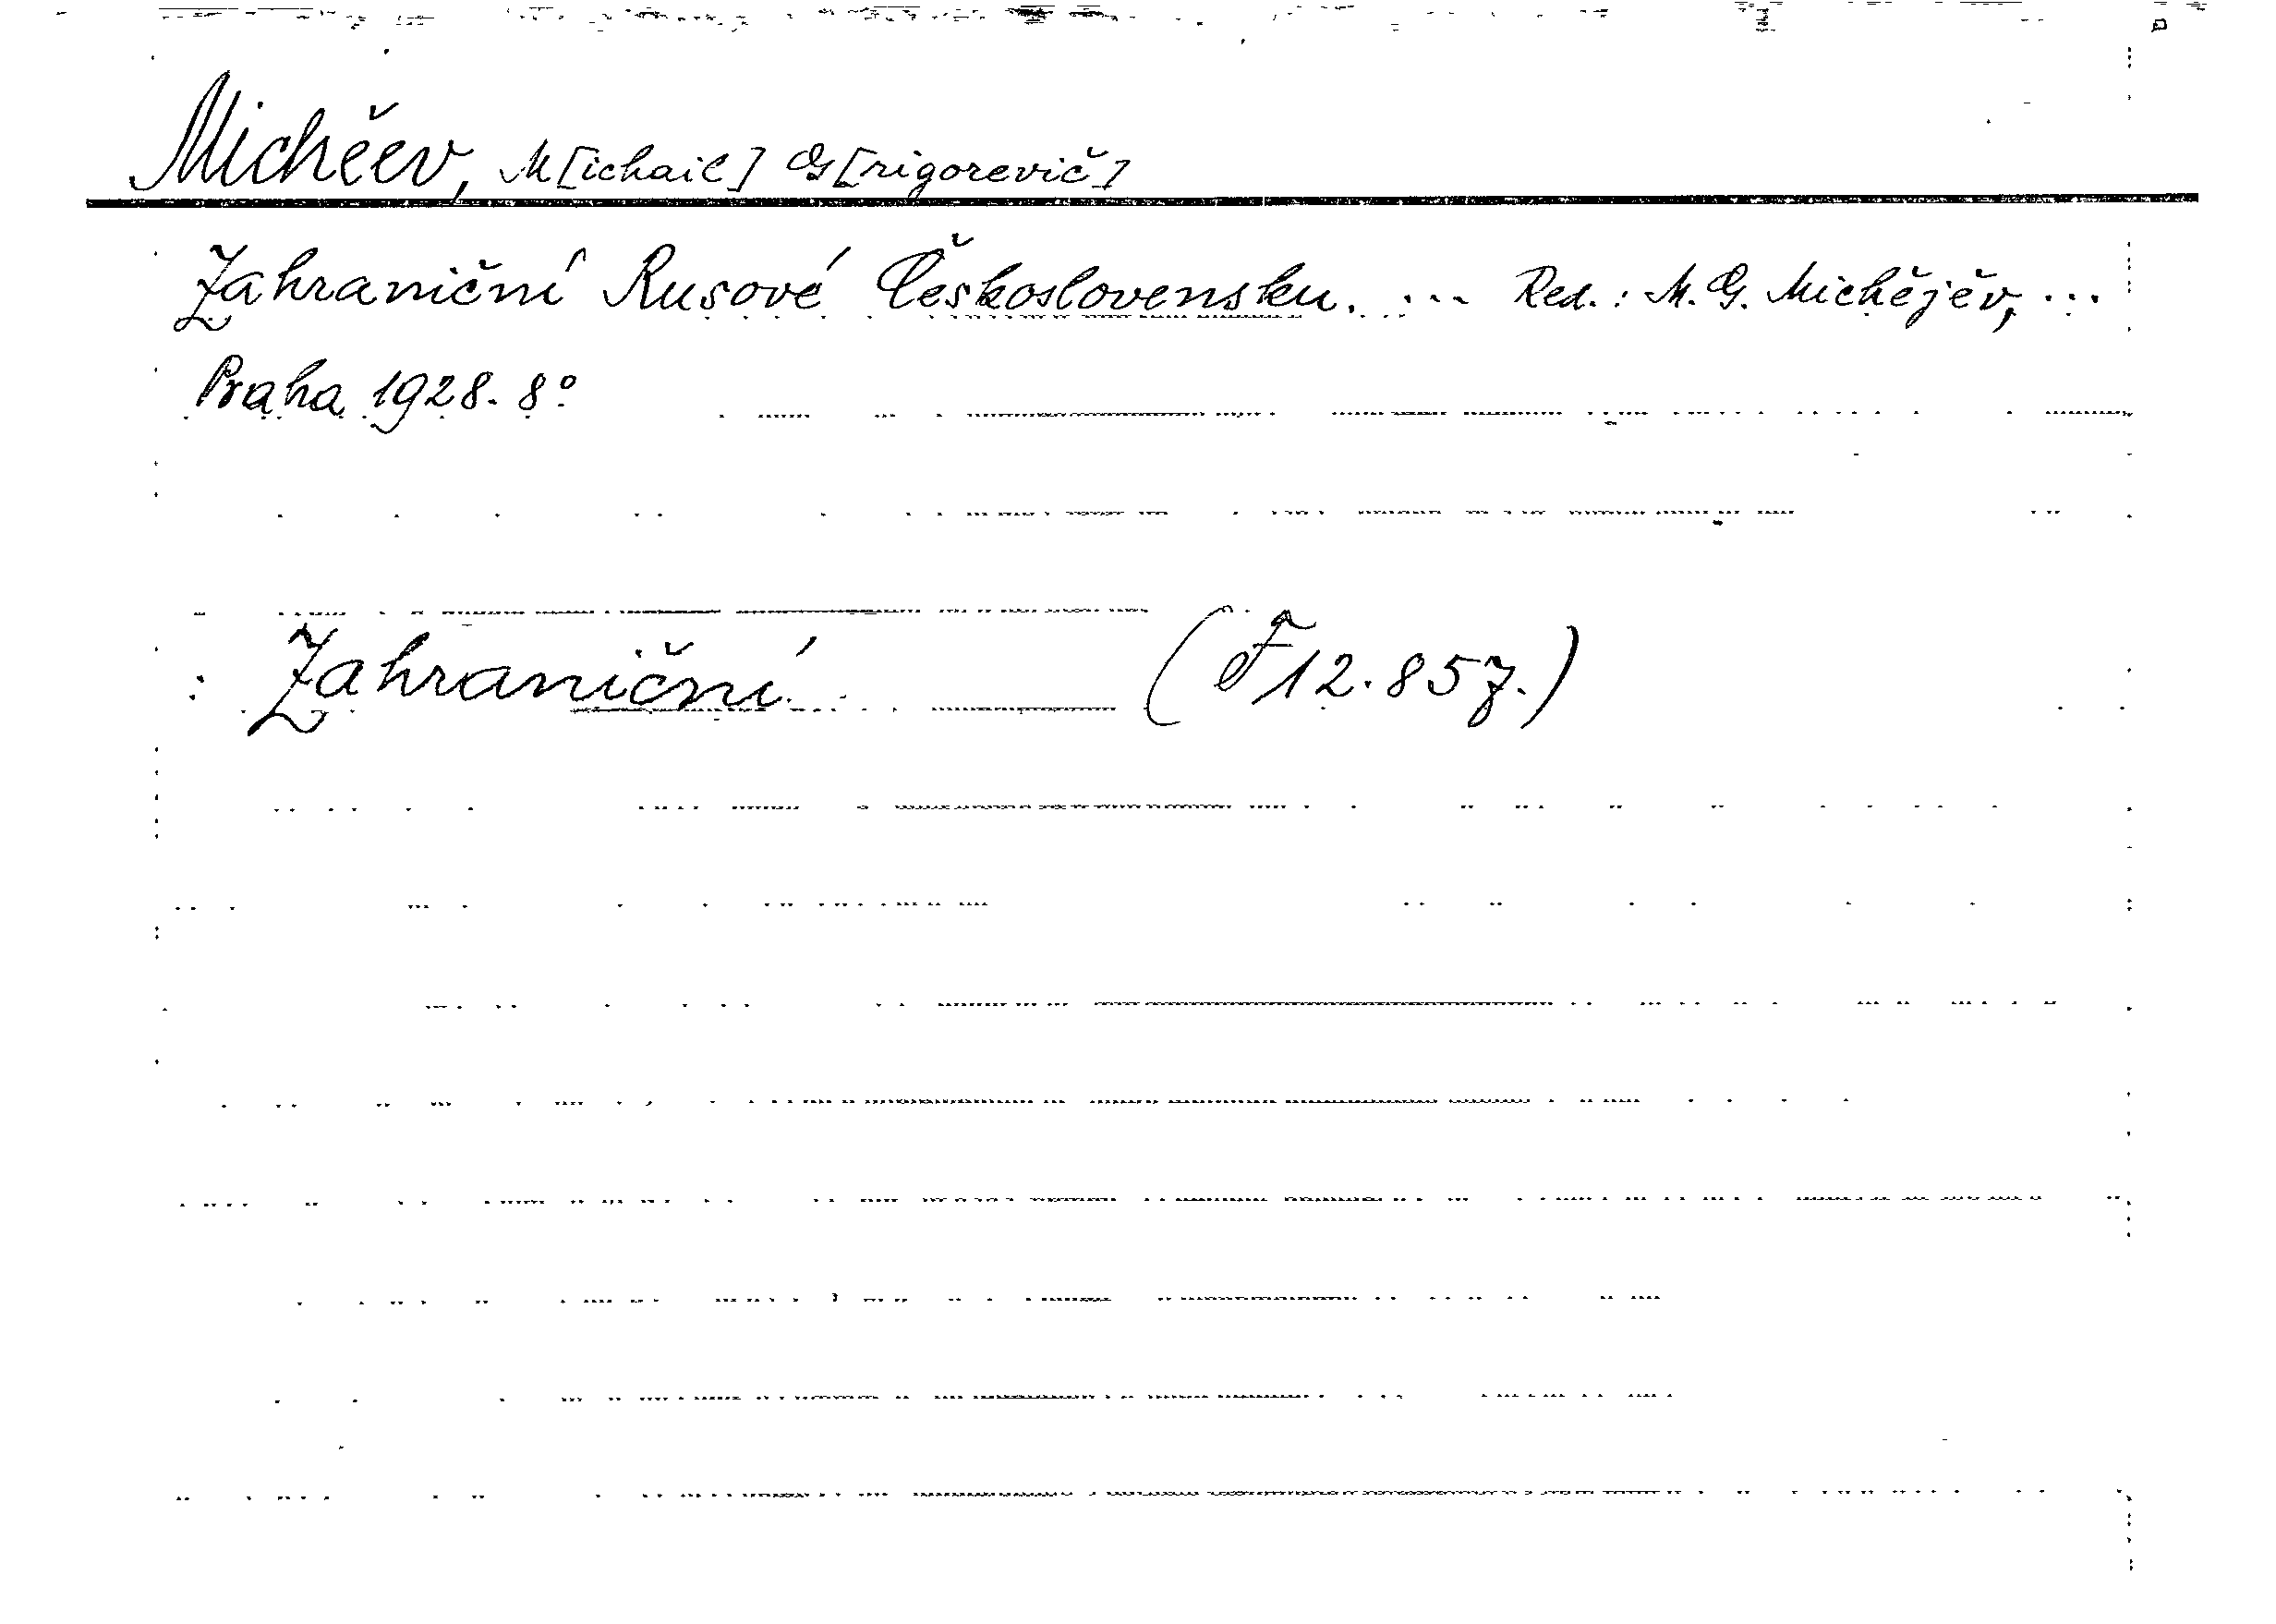 Michěev, M[ichail] G[rigorevič]
Zahraniční Rusové Československu. ... Red.: M. G. Michějěv, ...
Praha 1928. 8°
Zahraniční (F 12.857.)